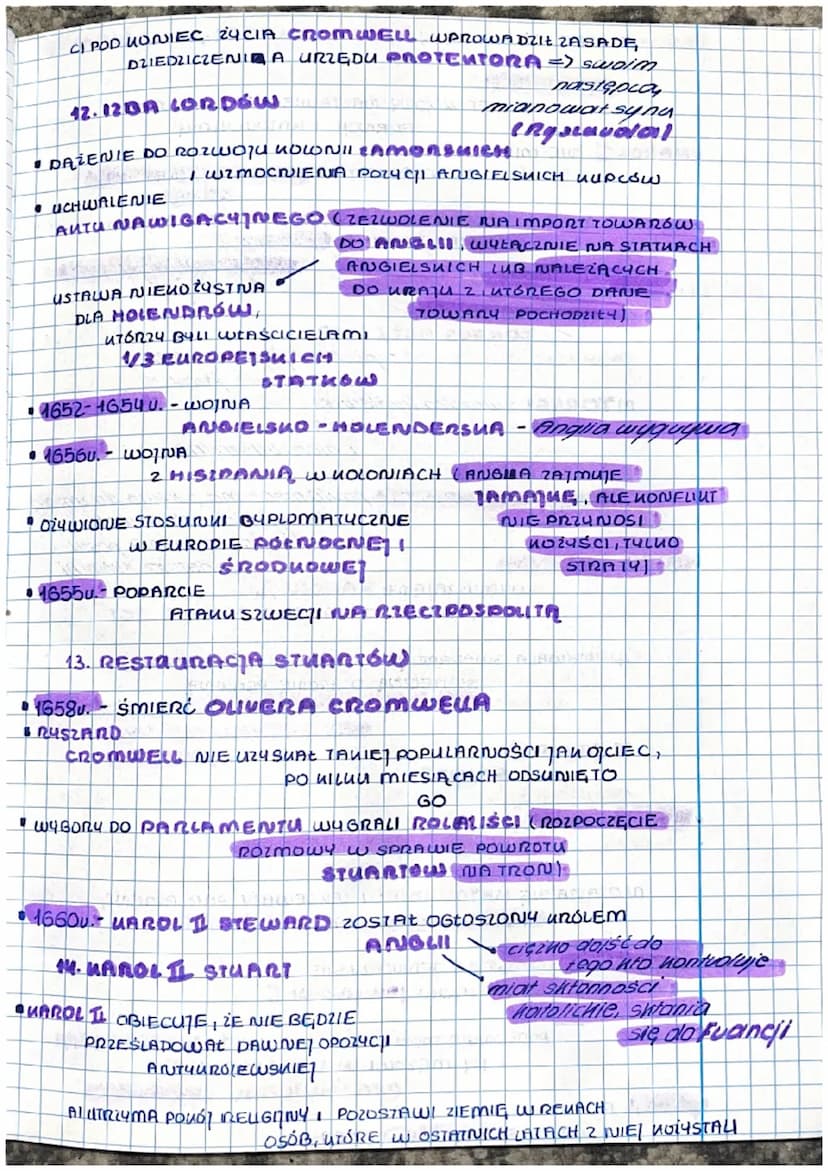 C) POD KONIEC ŻYCIA CROMWELL WPROWADZIŁ ZASADĘ
DZIEDZICZENIA URZĘDU PROTEKTORA => swoim
następcą
mianował syna
(Ryszarda)
12. IZBA LORDÓW
• DĄŻENIE DO ROZWOJU KOLONII ZAMORSKICH
I WZMOCNIENIA POZYCJI ANGIELSKICH KUPCÓW
• UCHWALENIE
AKTU NAWIGACYJNEGO (ZEZWOLENIE NA IMPORT TOWARÓW
DO ANGLII, WYŁĄCZNIE NA STATKACH
ANGIELSKICH LUB NALEŻĄCYCH
DO KRAJU Z KTÓREGO DANE
TOWARY POCHODZIŁY)
USTAWA NIEKOŻYSTNA
DLA HOLENDRÓW,
KTÓRZY BYLI WŁAŚCICIELAMI
1/3 EUROPEJSKICH
STATKÓW
• 1652-1654r. - WOJNA
ANGIELSKO - HOLENDERSKA - Anglia wygrywa
• 1656r. - WOJNA
Z HISZPANIĄ W KOLONIACH (ANGLIA ZAJMUJE
JAMAJKĘ, ALE KONFLIKT
NIE PRZYNOSI
KOŻYŚCI, TYLKO
STRATY)
• OŻYWIONE STOSUNKI DYPLOMATYCZNE
W EUROPIE PÓŁNOCNEJ I
ŚRODKOWEJ
• 1655r. - POPARCIE
ATAKU SZWECJI NA RZECZPOSPOLITĄ
13. RESTAURACJA STUARTÓW
• 1658r. - ŚMIERĆ OLIVERA CROMWELLA
• RYSZARD
CROMWELL NIE UZYSKAŁ TAKIEJ POPULARNOŚCI JAK OJCIEC,
PO KILKU MIESIĄCACH ODSUNIĘTO
GO
• WYBORY DO PARLAMENTU WYGRALI ROLALIŚCI (ROZPOCZĘCIE
ROZMOWY W SPRAWIE POWROTU
STUARTÓW NA TRON)
• 1660r. - KAROL II STEWARD ZOSTAŁ OGŁOSZONY KRÓLEM
ANGLII
ciężko dojść do
tego kto kontroluje
miał skłonności
katolickie, skłania
się do Francji
14. KAROL II STUART
• KAROL II OBIECUJE, ŻE NIE BĘDZIE
PRZEŚLADOWAŁ DAWNEJ OPOZYCJI
ANTYKRÓLEWSKIEJ
A) UTRZYMA POKÓJ RELIGIJNY I POZOSTAWI ZIEMIĘ W RĘKACH
OSÓB, KTÓRE W OSTATNICH LATACH Z NIEJ KOŻYSTALI